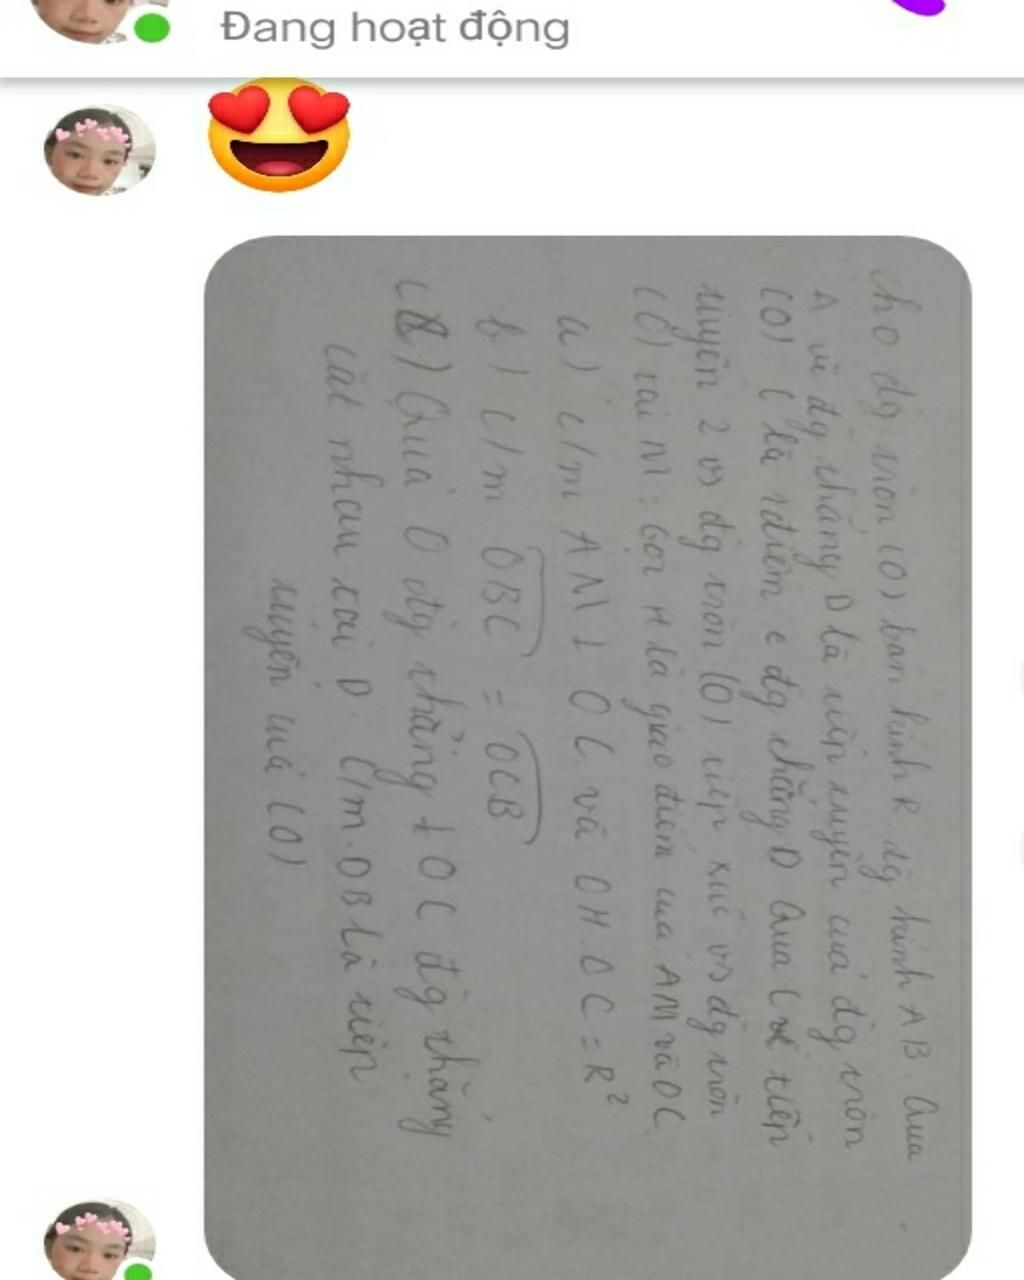 Đang hoạt động
Cho đg tròn (O) bán kính R đg kính AB. Qua
A vẽ đg thẳng D là tiếp tuyến của đg tròn
(O) C là 1 điểm e đg thẳng D Qua C vẽ tiếp
tuyến 2 vs đg tròn (O) tiếp xúc vs đg tròn
(O) tại M. Gọi H là giao điểm của AM và OC.
a) c/m AM ⊥ OC và OH.OC = R²
b) c/m OBC = OCB
Qua O đg thẳng ⊥ OC đg thẳng
cắt nhau tại D. C/m. DB là tiếp
tuyến của (O)